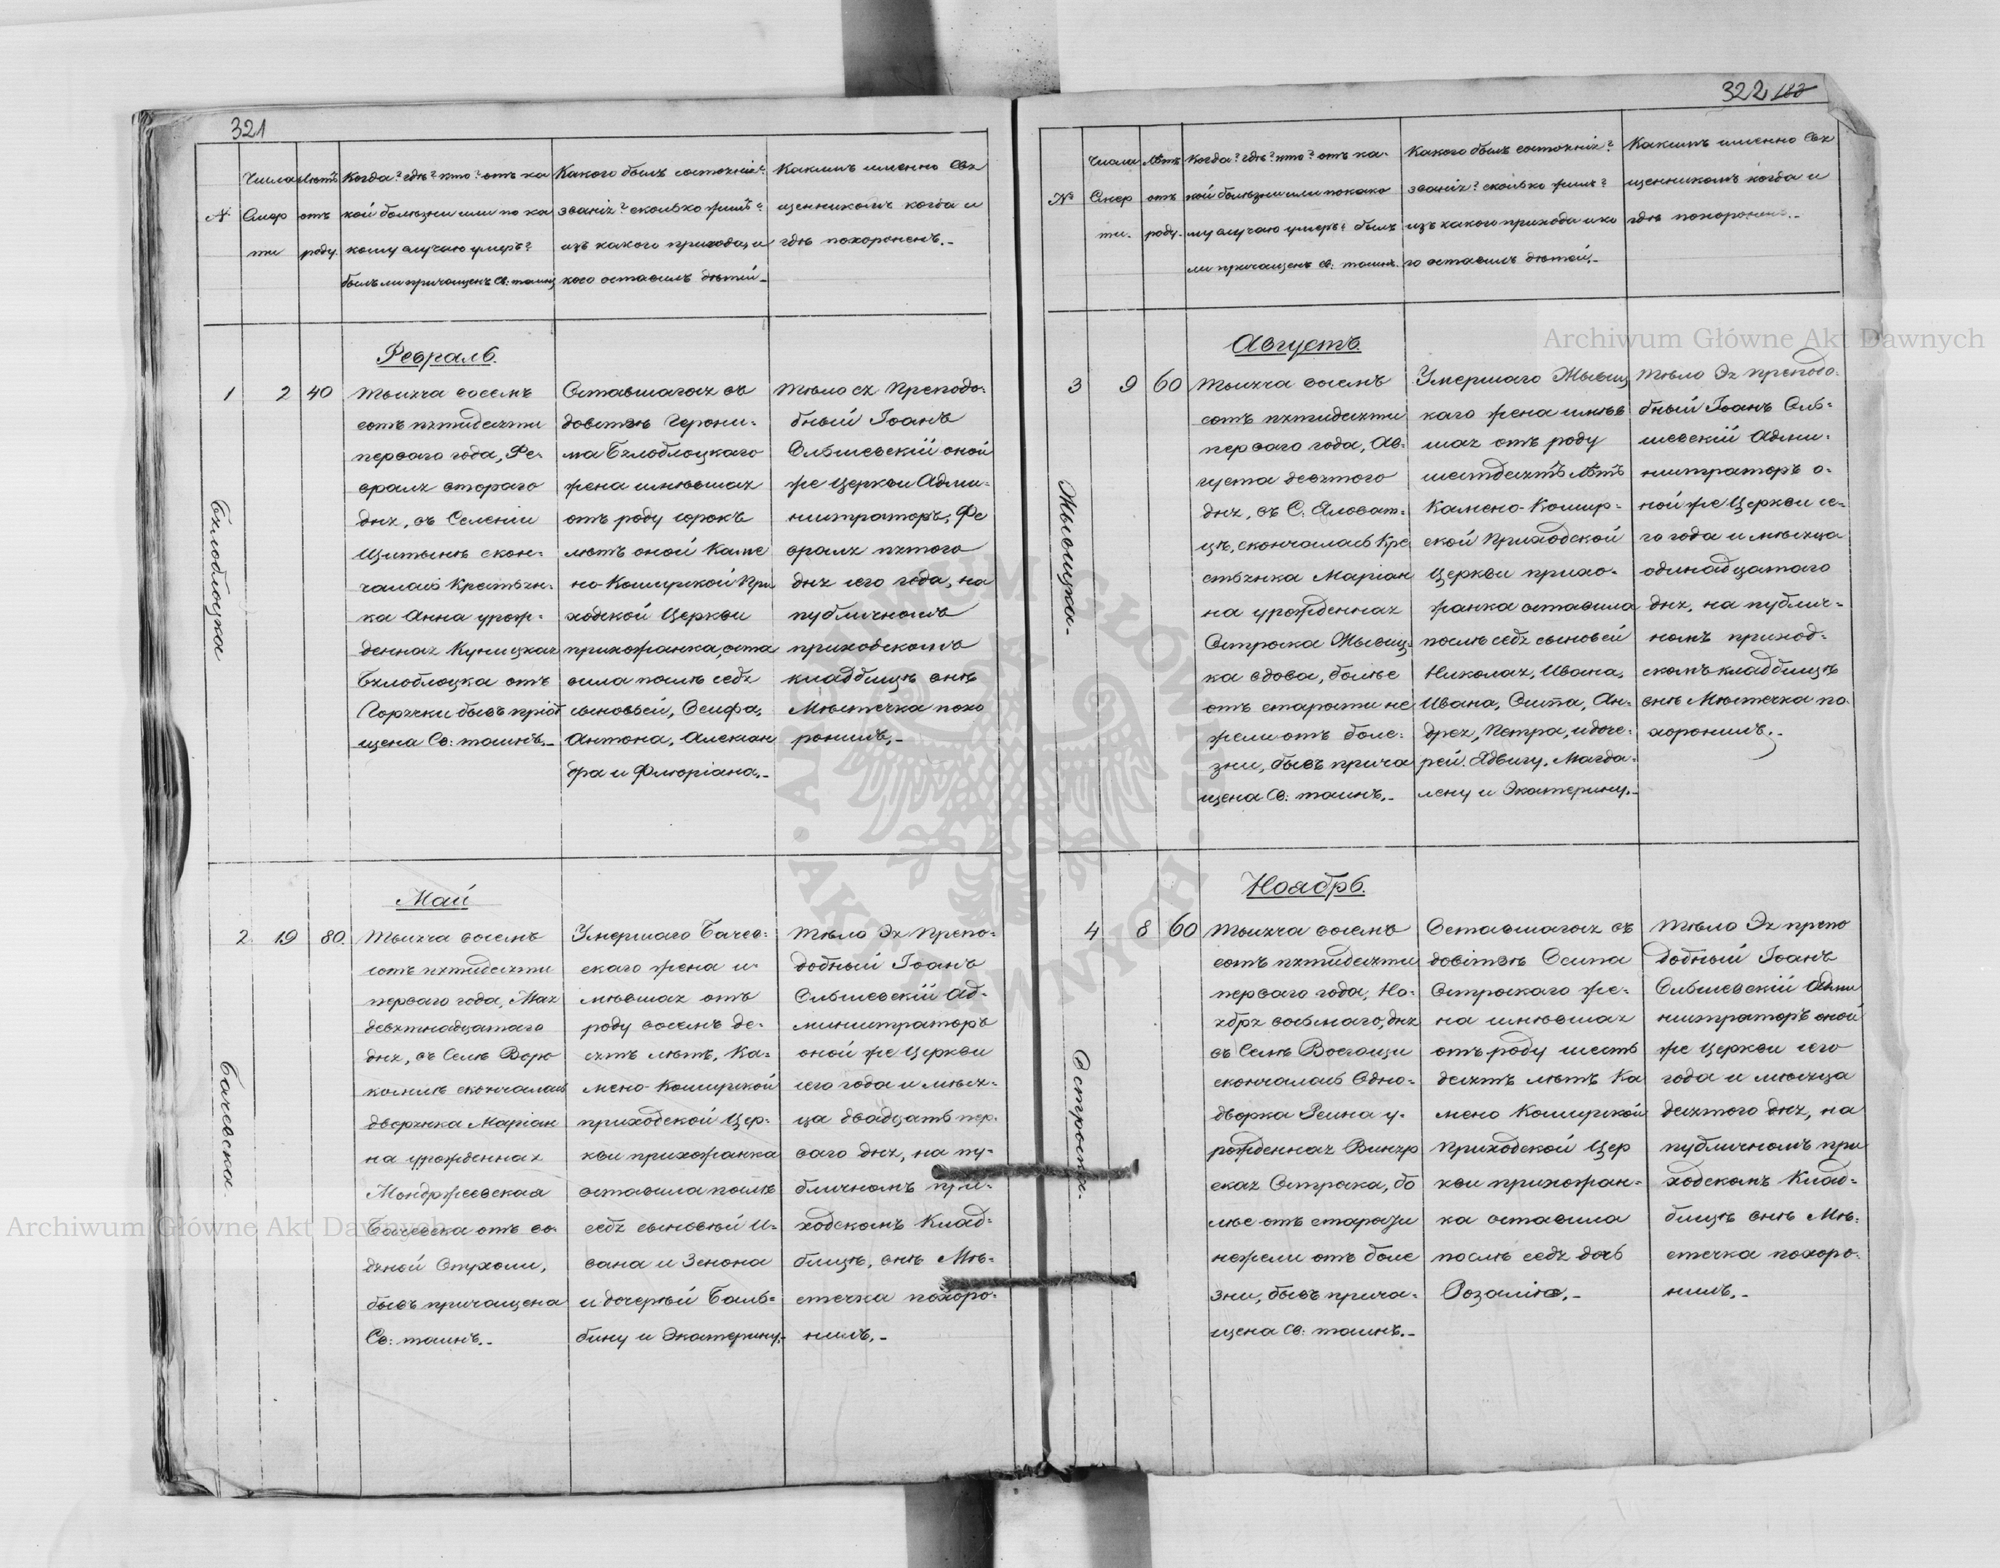 321
N
Числа Смерти
Лѣтъ отъ роду.
Когда? гдѣ? кто? отъ ка
кой болѣзни или по ка
кому случаю умеръ?
былъ ли причащенъ Св: таинъ
Какого былъ состоянія?
званія? сколько жилъ?
изъ какого прихода, и
кого оставилъ дѣтей._
Какимъ именно Свя
щенникомъ когда и
гдѣ похороненъ._
Бялоблоцка
Февраль.
1
2
40
Тысяча восемь
сотъ пятидесяти
перваго года, Фе-
враля втораго
дня, въ Селеніи
скон-
чалась Крестьян-
ка Анна урож-
денная Куницкая
Бялоблоцка отъ
Горячки бывъ пріоб
щена Св: таинъ._
Оставшагося въ
Герони-
ма Бялоблоцкаго
жена имѣвшая
отъ роду сорокъ
лѣтъ оной Каме
но-Коширской При
ходской Церкви
прихожанка, оста
вила послѣ себя
сыновьей, Осифа,
Антона, Алексан
дра и Флюріана._
Тѣло ея Преподо-
бный Іоанъ
Ольшевскій оной
же Церкви Адми-
нистраторъ, Фе
враля пятого
дня сего года, на
публичномъ
приходскомъ
кладбищѣ внѣ
Мѣстечка похо
ронилъ._
Бачевска.
Май
2
19
80
Тысяча восемь
сотъ пятидесяти
перваго года, Мая
девятнадцатаго
дня, въ Селѣ Воро
комлѣ скончалась
дворянка Маріан
на урожденная
Мондржеевская
Бачевска отъ во-
дяной Опухоли,
бывъ причащена
Св: таинъ._
Умершаго Бачев-
скаго жена и-
мѣвшая отъ
роду восемь де-
сятъ лѣтъ, Ка-
мено-Коширской
приходской Цер-
кви прихожанка
оставила послѣ
себя сыновьей И-
вана и Зенона
и дочерьей Баль-
бину и Экатерину._
Тѣло Эя Препо-
добный Іоанъ
Ольшевскій Ад-
министраторъ
оной же Церкви
сего года и мѣся-
ца двадцать пер-
ваго дня, на пу-
бличномъ при-
ходскомъ Клад-
бищѣ, внѣ Мѣ-
стечка похоро-
нилъ._
322
№
Числа Смерти.
Лѣтъ отъ роду.
Когда? гдѣ? кто? отъ ка-
кой болѣзни или по како
му случаю умеръ? былъ
ли причащенъ св: таинъ.
Какого былъ состоянія?
званія? сколько жилъ?
изъ какого прихода и ко
го оставилъ дѣтей._
Какимъ именно Свя
щенникомъ когда и
гдѣ похороненъ._
Жывицка.
Августъ.
3
9
60
Тысяча восемь
сотъ пятидесяти
перваго года, Ав-
густа девятого
дня, въ С:
скончалась Кре
стьянка Маріан
на урожденная
Остроска Жывиц-
ка вдова, болѣе
отъ старости не
жели отъ боле-
зни, бывъ прича
щена Св: таинъ._
Умершаго Жывиц
каго жена имѣв
шая отъ роду
шестдесятъ лѣтъ
Камено-Кошир-
ской Приходской
Церкви прихо-
жанка оставила
послѣ себя сыновей
Николая, Ивана,
Ивана, Осипа, Ан-
дрея, Петра, и доче-
рей. Ядвигу, Магда-
лену и Экатерину._
Тѣло Эя преподо-
бный Іоанъ Оль-
шевскій Адми-
нитраторъ о-
ной же Церкви се-
го года и мѣсяца
одинадцатаго
дня, на публич-
номъ приход-
скомъ кладбищѣ
внѣ Мѣстечка по
хоронилъ._
Остроска.
Ноябрь.
4
8
60
Тысяча восемь
сотъ пятидесяти
перваго года, Но-
ября восьмаго, дня
въ Селѣ Воегощи
скончалась Одно-
дворка Реина у-
рожденная Виняр
ская Остроска, бо
лѣе отъ старости
нежели отъ боле
зни, бывъ прича-
щена св: таинъ._
Оставшагося въ
Осипа
Остроскаго же-
на имѣвшая
отъ роду шесть
десятъ лѣтъ Ка
мено Коширской
Приходской Цер
кви прихожан-
ка оставила
послѣ себя дочь
Розалію._
Тѣло Эя препо
добный Іоанъ
Ольшевскій Адми
нитраторъ оной
же Церкви сего
года и мѣсяца
десятого дня, на
публичномъ при
ходскомъ Клад-
бищѣ внѣ Мѣ-
стечка похоро-
нилъ._
Archiwum Główne Akt Dawnych
Archiwum Główne Akt Dawnych